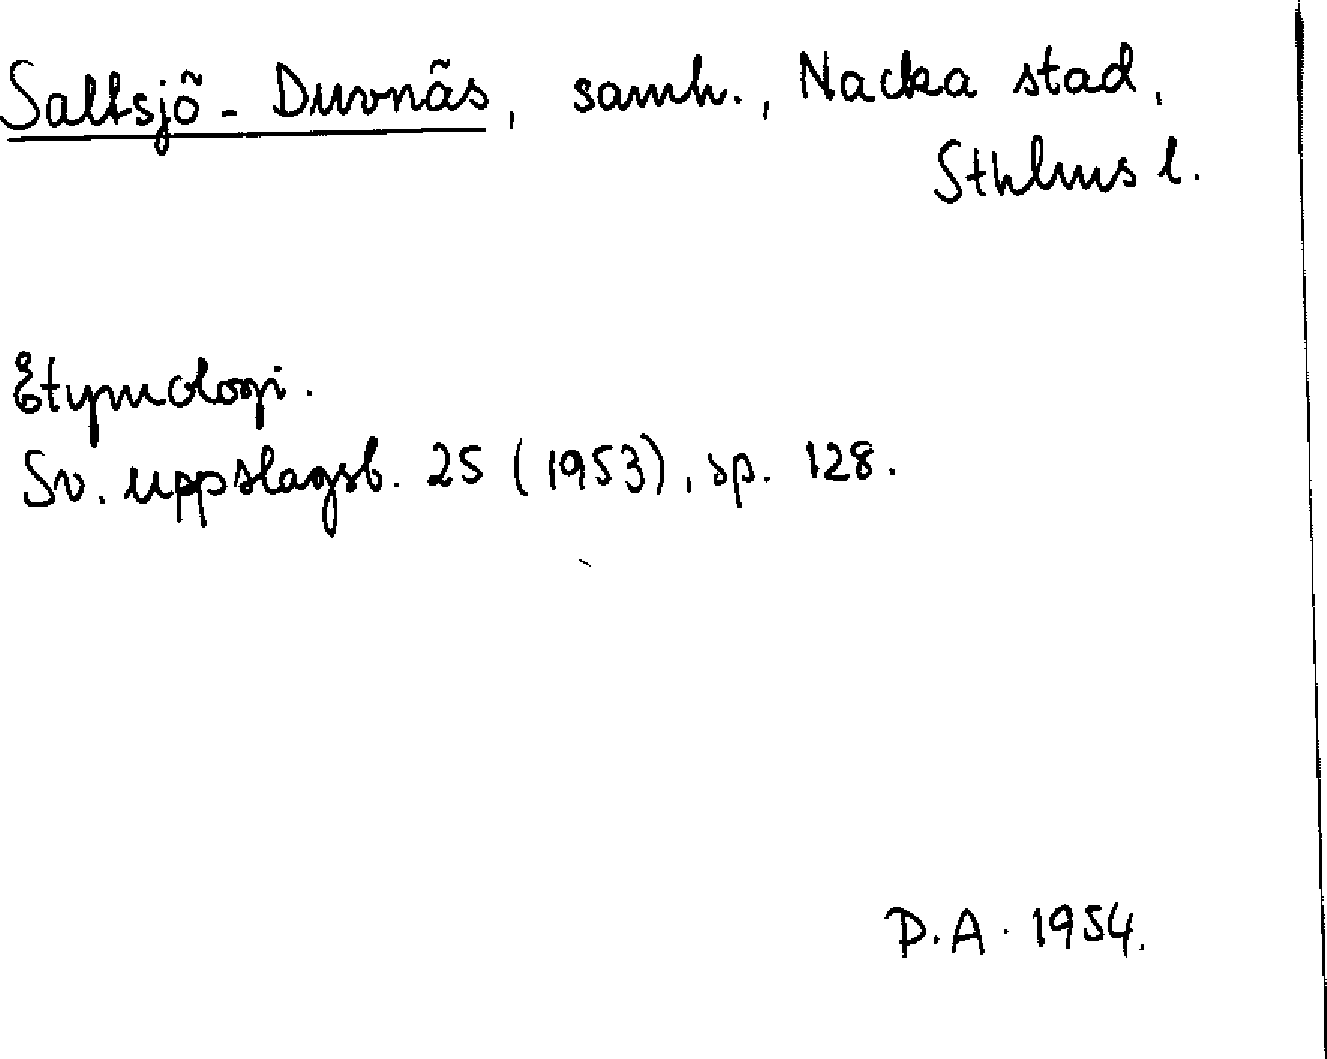 Saltsjö-Duvnäs, samh., Nacka stad,
Sthlms l.
Etymologi.
Sv. uppslagsb. 25 (1953), sp. 128.
D.A. 1954.